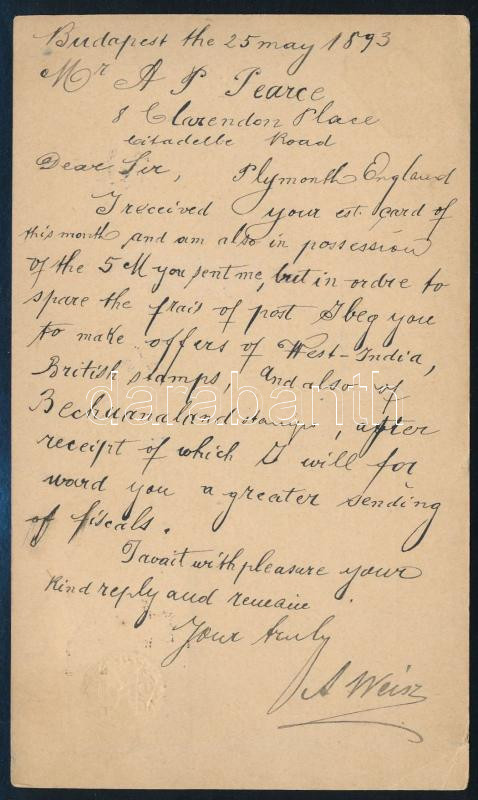 Budapest the 25 may 1893
Mr A P Pearce
8 Clarendon Place
Citadelle Road
Dear Sir, Plymonth England
I received your est. card of
this month and am also in possession
of the 5 M you sent me, but in ordre to
spare the frais of post I beg you
to make offers of West-India,
British stamps, and also of
Bechuanaland stamps, after
receipt of which I will for
ward you a greater sending
of fiscals.
I avait with pleasure your
kind reply and remain
Your truly
A Weisz
darabanth